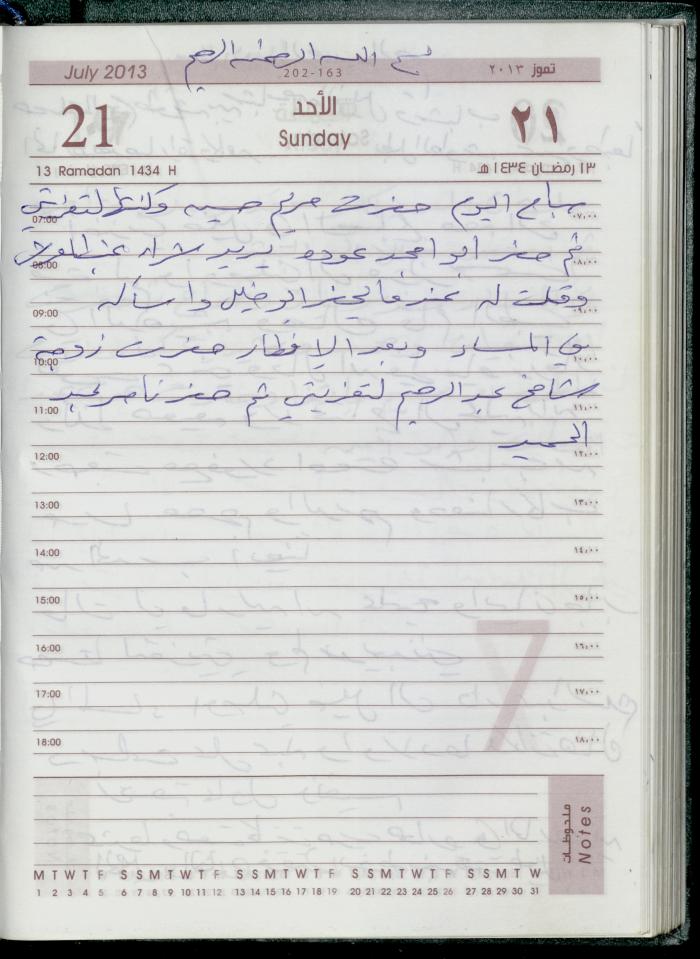 بسم الله الرحمن الرحيم
July 2013
202-163
تموز ٢٠١٣
21
الأحد
Sunday
٢١
13 Ramadan 1434 H
١٣ رمضان ١٤٣٤ هـ
صباح اليوم حضرت مريم حسين وكنتها لتعزيتي
07:00 ٠٧:٠٠
ثم حضر ابو امجد عوده يريد شراء
08:00 ٠٨:٠٠
وقلت له عندما يحضر ابو خليل واسأله
09:00 ٠٩:٠٠
في المساء وبعد الإفطار حضرت زوجة
10:00 ١٠:٠٠
شامخ عبد الرحيم لتعزيتي ثم حضر ناصر عبد
11:00 ١١:٠٠
الحميد
12:00 ١٢:٠٠
13:00 ١٣:٠٠
14:00 ١٤:٠٠
15:00 ١٥:٠٠
16:00 ١٦:٠٠
17:00 ١٧:٠٠
18:00 ١٨:٠٠
7
ملحوظات
Notes
M T W T F S S M T W T F S S M T W T F S S M T W T F S S M T W
1 2 3 4 5 6 7 8 9 10 11 12 13 14 15 16 17 18 19 20 21 22 23 24 25 26 27 28 29 30 31